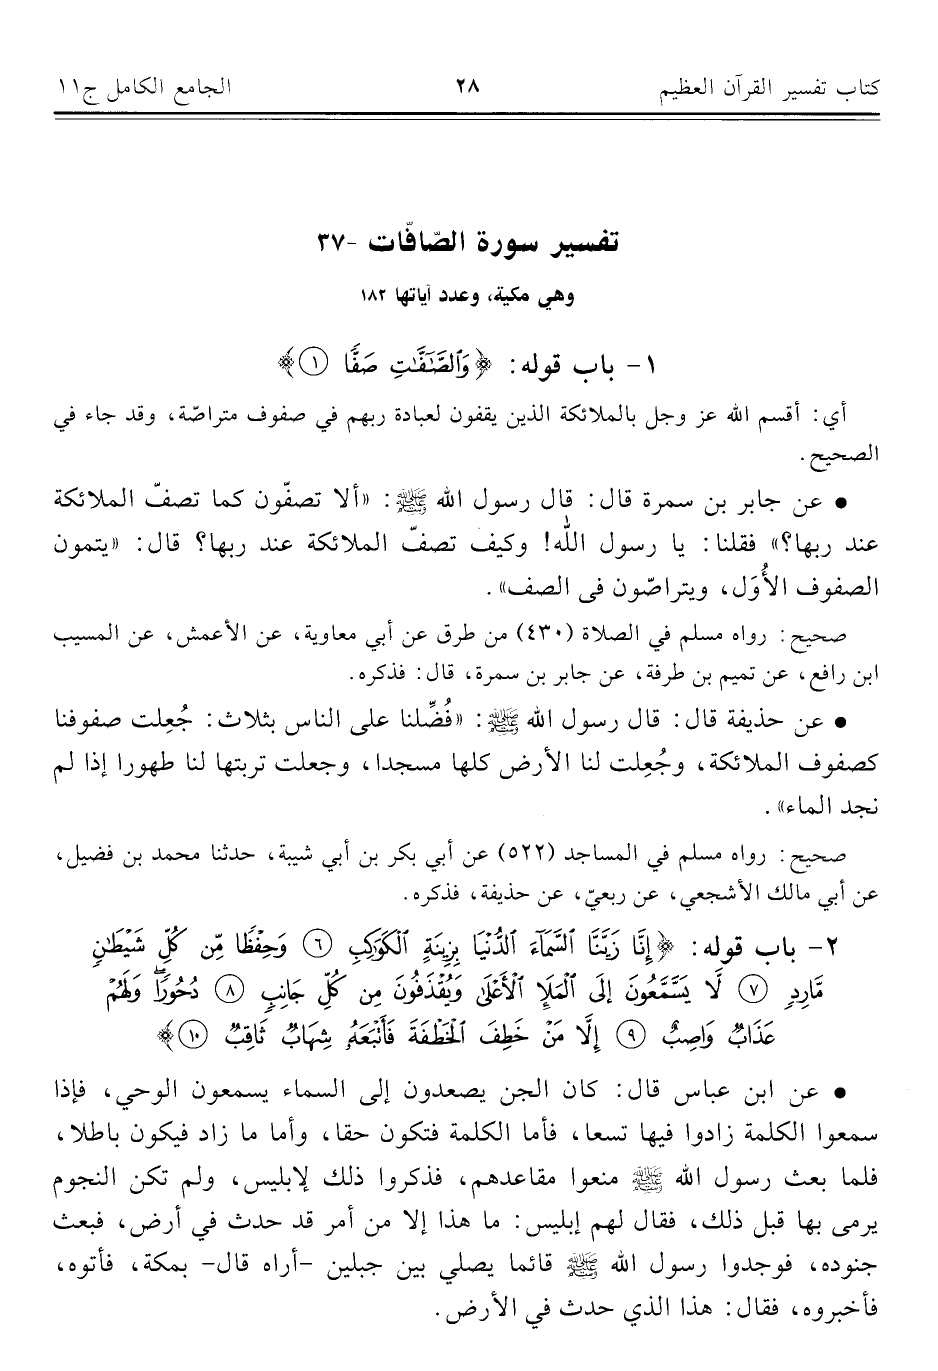 كتاب تفسير القرآن العظيم ٢٨ الجامع الكامل ج١١
تفسير سورة الصّافّات -٣٧
وهي مكية، وعدد آياتها ١٨٢
١- باب قوله: ﴿وَٱلصَّـٰٓفَّـٰتِ صَفًّا ١﴾
أي: أقسم الله عز وجل بالملائكة الذين يقفون لعبادة ربهم في صفوف متراصّة، وقد جاء في
الصحيح.
• عن جابر بن سمرة قال: قال رسول الله ﷺ: «ألا تصفّون كما تصفّ الملائكة
عند ربها؟» فقلنا: يا رسول الله! وكيف تصفّ الملائكة عند ربها؟ قال: «يتمون
الصفوف الأُوَل، ويتراصّون في الصف».
صحيح: رواه مسلم في الصلاة (٤٣٠) من طرق عن أبي معاوية، عن الأعمش، عن المسيب
ابن رافع، عن تميم بن طرفة، عن جابر بن سمرة، قال: فذكره.
• عن حذيفة قال: قال رسول الله ﷺ: «فُضِّلنا على الناس بثلاث: جُعِلت صفوفنا
كصفوف الملائكة، وجُعِلت لنا الأرض كلها مسجدا، وجعلت تربتها لنا طهورا إذا لم
نجد الماء».
صحيح: رواه مسلم في المساجد (٥٢٢) عن أبي بكر بن أبي شيبة، حدثنا محمد بن فضيل،
عن أبي مالك الأشجعي، عن ربعيّ، عن حذيفة، فذكره.
٢- باب قوله: ﴿إِنَّا زَيَّنَّا ٱلسَّمَآءَ ٱلدُّنْيَا بِزِينَةٍ ٱلْكَوَاكِبِ ٦ وَحِفْظًا مِّن كُلِّ شَيْطَـٰنٍ
مَّارِدٍ ٧ لَّا يَسَّمَّعُونَ إِلَى ٱلْمَلَإِ ٱلْأَعْلَىٰ وَيُقْذَفُونَ مِن كُلِّ جَانِبٍ ٨ دُحُورًا ۖ وَلَهُمْ
عَذَابٌ وَاصِبٌ ٩ إِلَّا مَنْ خَطِفَ ٱلْخَطْفَةَ فَأَتْبَعَهُۥ شِهَابٌ ثَاقِبٌ ١٠﴾
• عن ابن عباس قال: كان الجن يصعدون إلى السماء يسمعون الوحي، فإذا
سمعوا الكلمة زادوا فيها تسعا، فأما الكلمة فتكون حقا، وأما ما زاد فيكون باطلا،
فلما بعث رسول الله ﷺ منعوا مقاعدهم، فذكروا ذلك لإبليس، ولم تكن النجوم
يرمى بها قبل ذلك، فقال لهم إبليس: ما هذا إلا من أمر قد حدث في أرض، فبعث
جنوده، فوجدوا رسول الله ﷺ قائما يصلي بين جبلين -أراه قال- بمكة، فأتوه،
فأخبروه، فقال: هذا الذي حدث في الأرض.